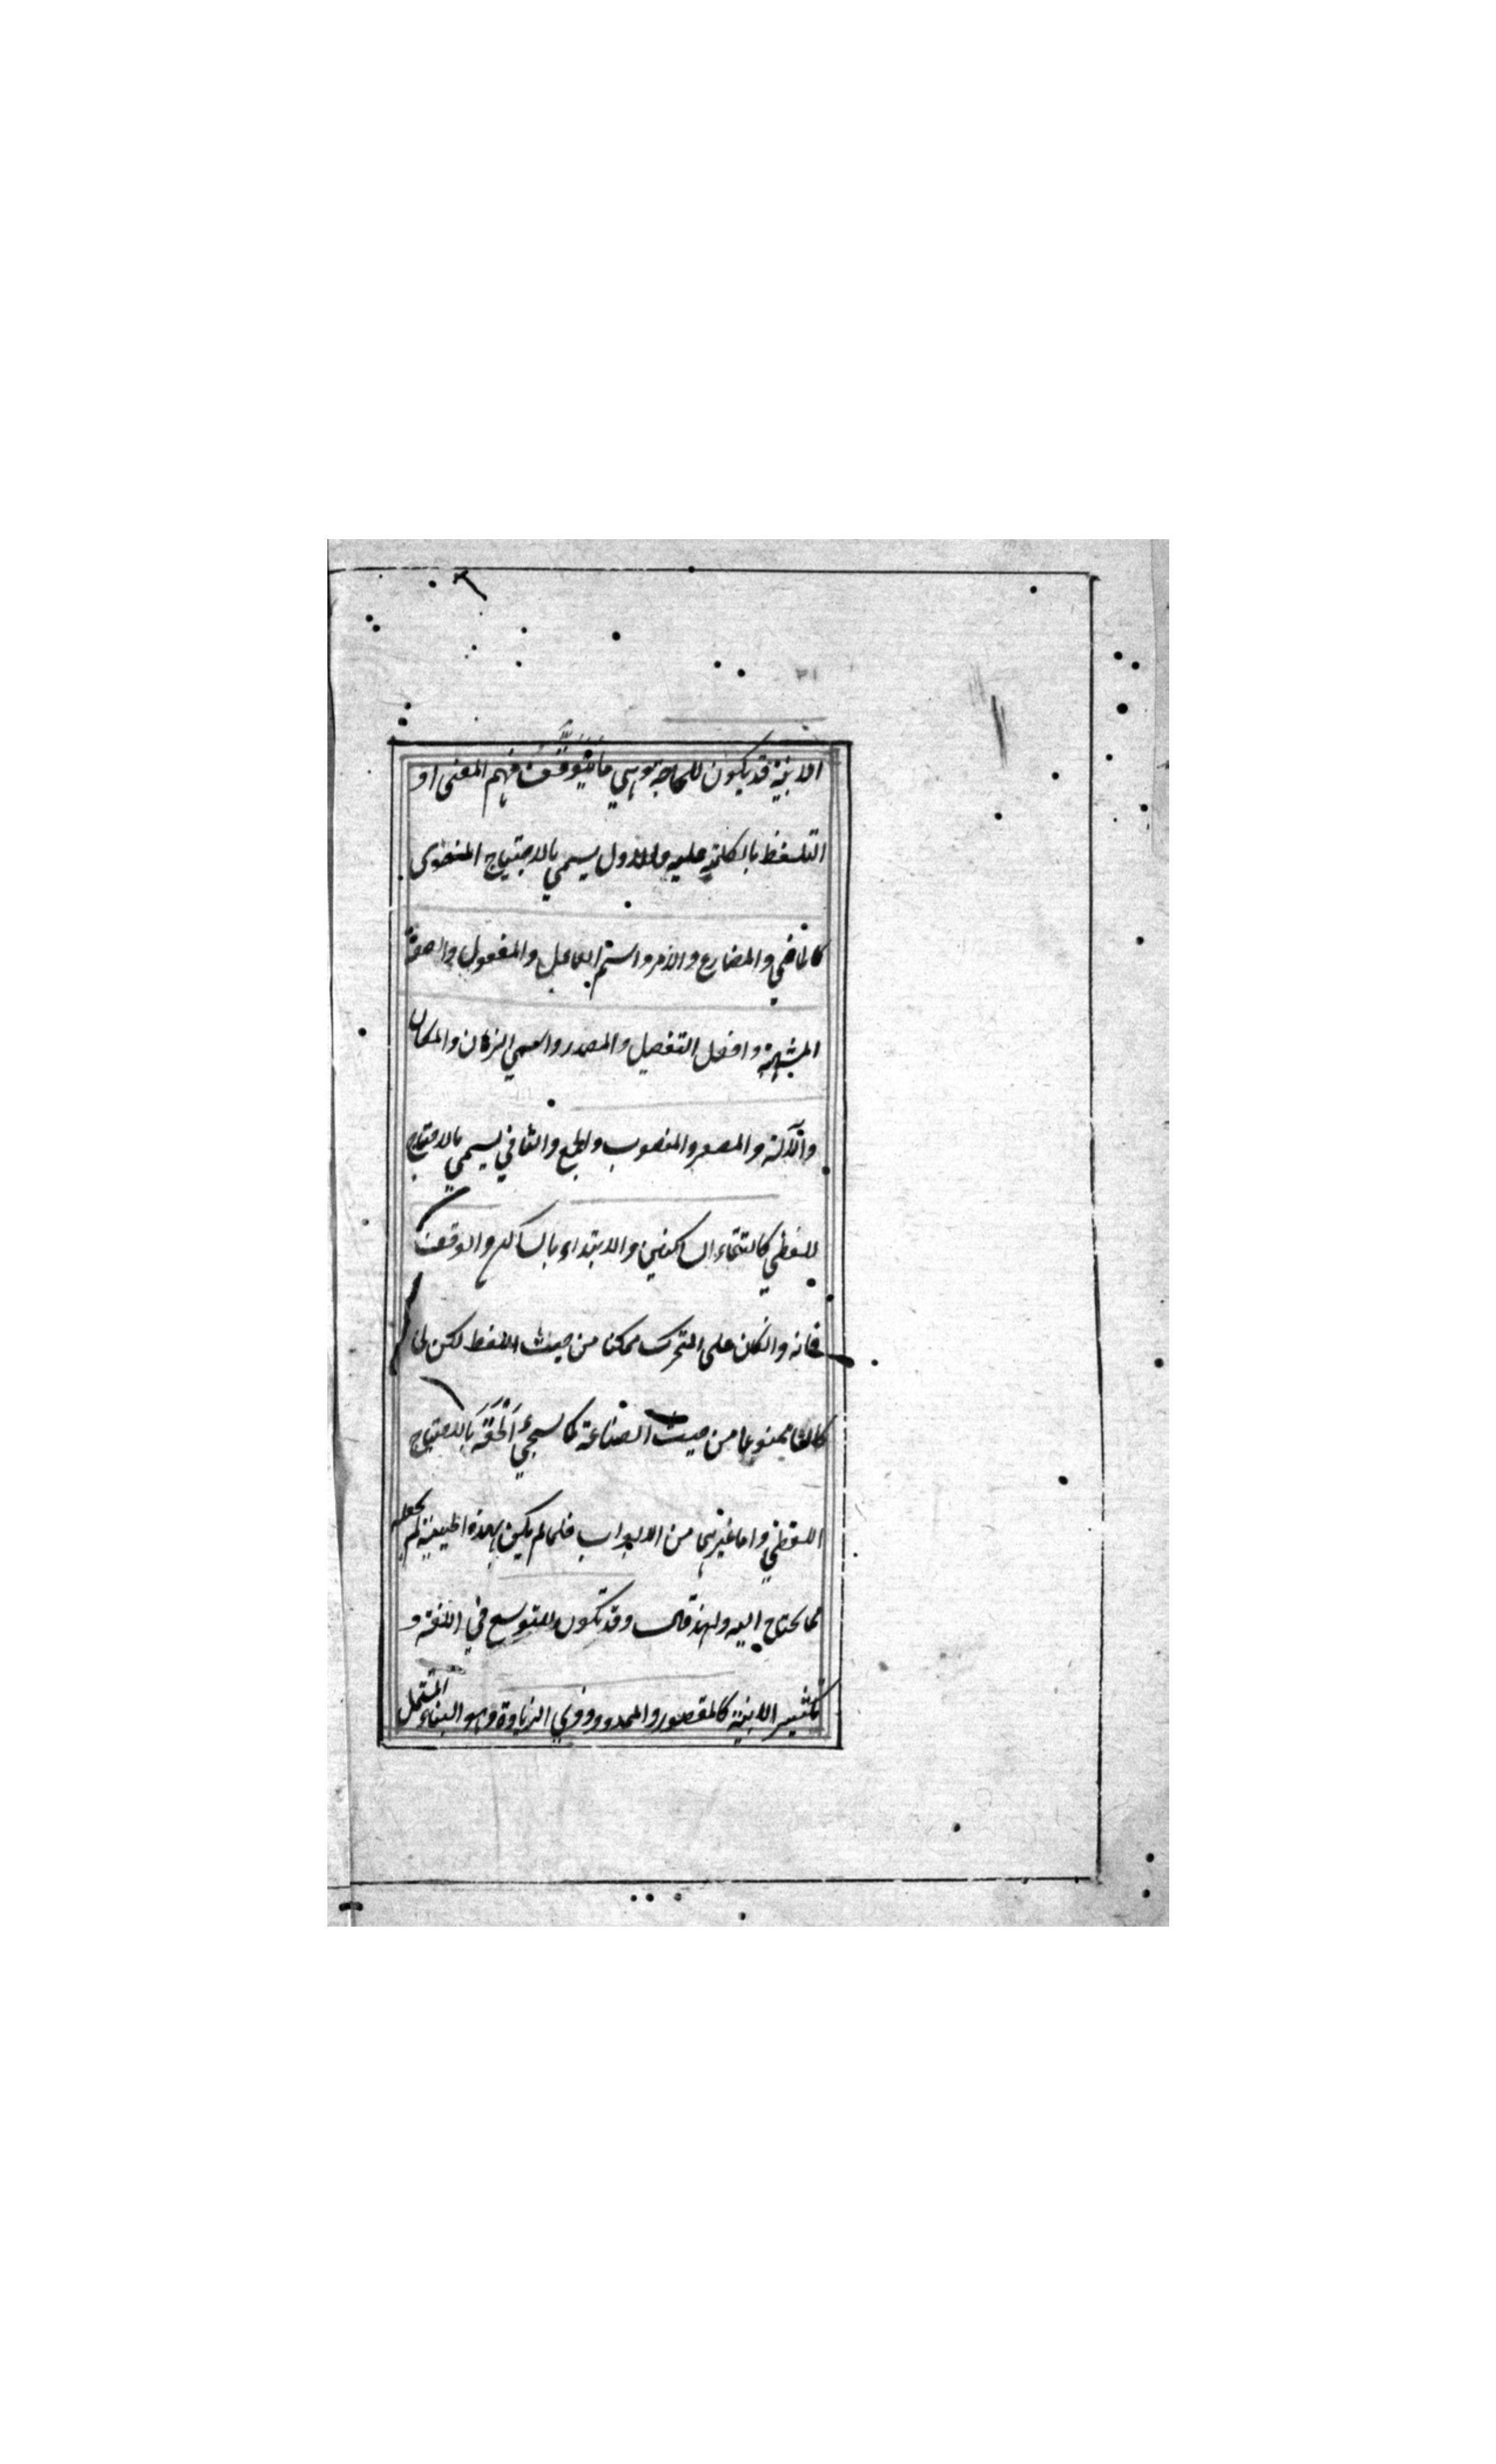 الابنية قد يكون للحاجة وهي ما يتوقف فهم المعنى او
التلفظ بالكلمة عليه والاول يسمي بالاحتياج المعنوى
كالماضي والمضارع والامر واسم الفاعل والمفعول والصفة
المشبهة وافعل التفضيل والمصدر واسمي الزمان والمكان
والآلة والمصغر والمنسوب والجمع والثاني يسمي بالاحتياج
اللفظي كالتقاء الساكنين والابتداء بالساكن والوقف
فانه وانكان على المتحرك ممكنا من حيث اللفظ لكن لما
كان ممنوعا من حيث الصناعة كما سيجيء الحقه بالاحتياج
اللفظي واما غيرها من الابواب فلما لم يكن بهذه الحيثية لم يجعله
مما يحتاج اليه ولهذا قال وقد تكون للتوسع في اللغة و
تكثير الابنية كالمقصور والممدود وذي الزيادة وهو البناء المشتمل